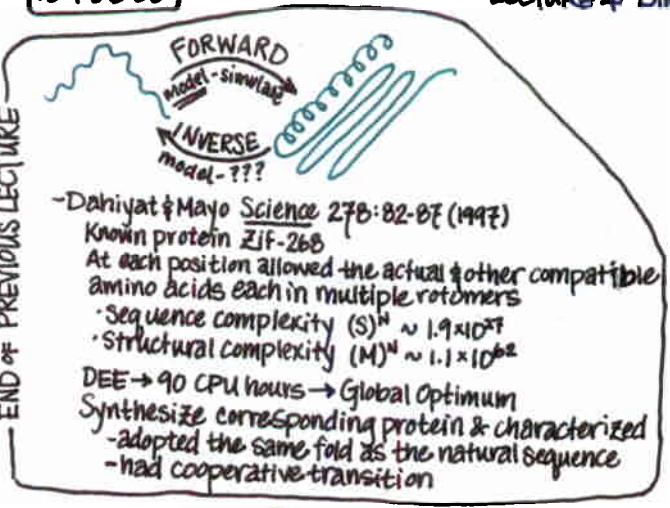 FORWARD
model-simulate
INVERSE
model-???
END OF PREVIOUS LECTURE
-Dahiyat & Mayo Science 278:82-87 (1997)
Known protein Zif-268
At each position allowed the actual & other compatible
amino acids each in multiple rotomers
·Sequence complexity (S)ᴺ ~ 1.9×10²⁷
·Structural complexity (M)ᴺ ~ 1.1×10⁶²
DEE→90 CPU hours→Global Optimum
Synthesize corresponding protein & characterized
-adopted the same fold as the natural sequence
-had cooperative transition